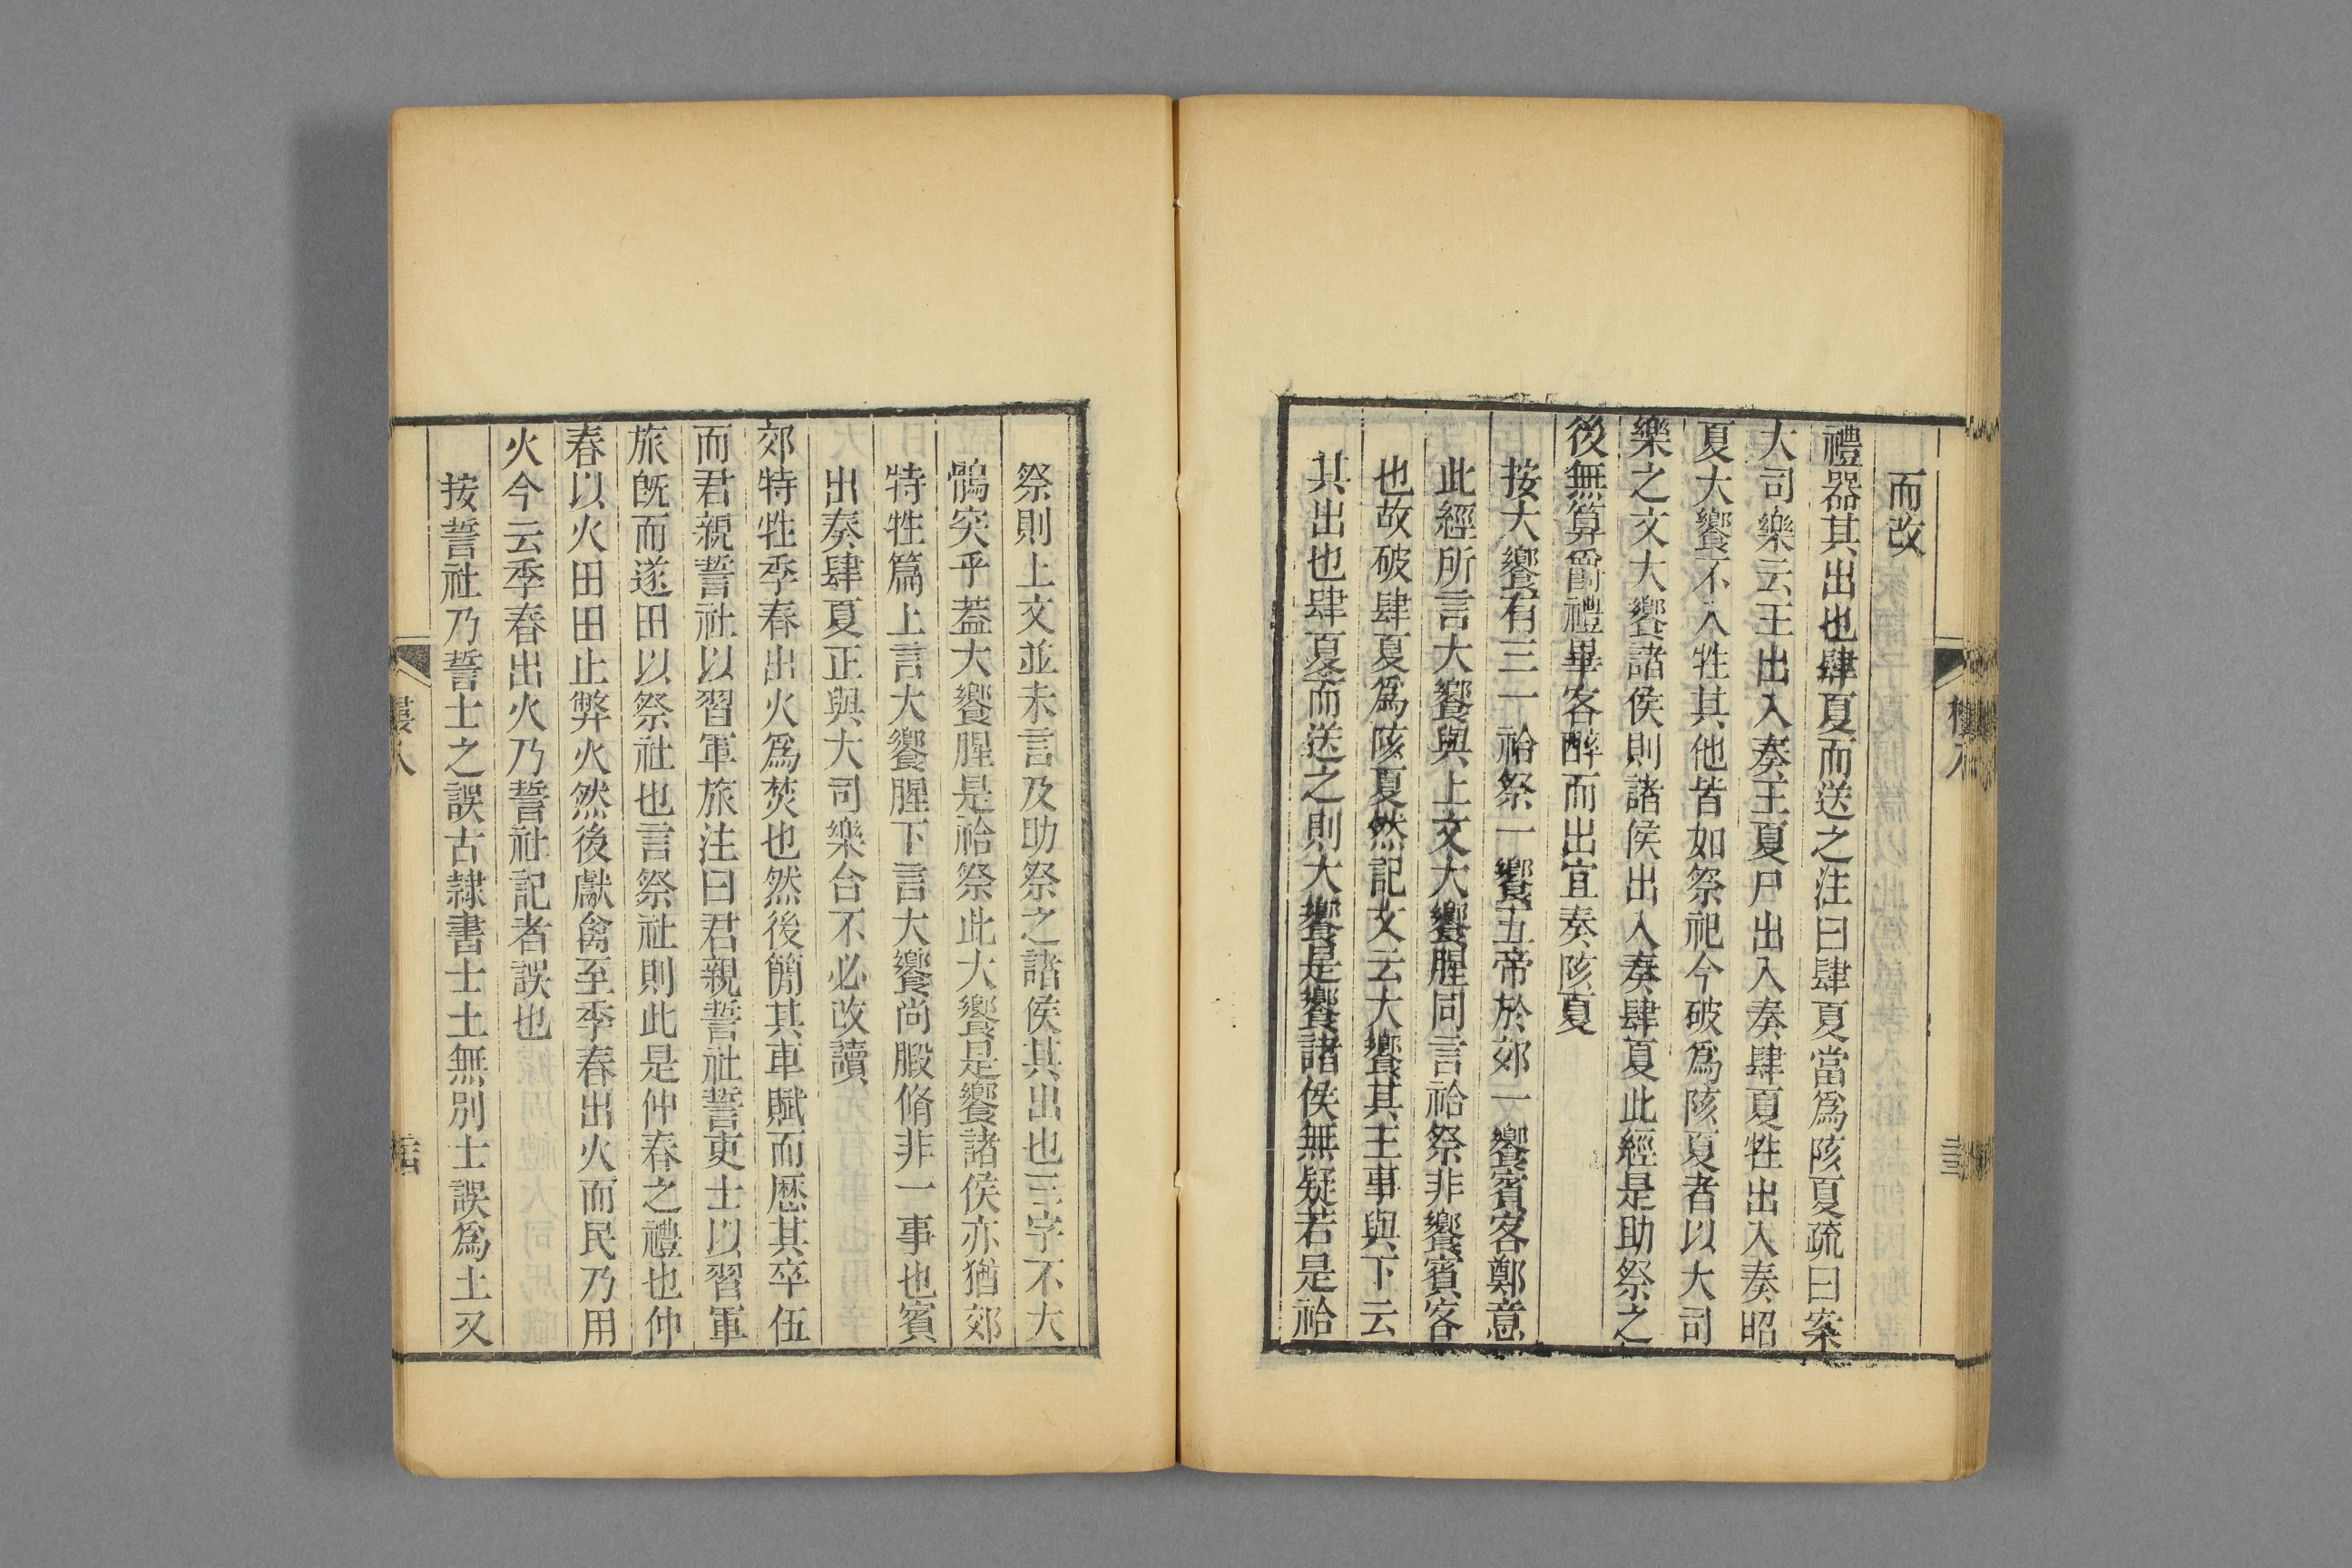 而改
禮器其出也肆夏而送之注曰肆夏當爲陔夏疏曰案
大司樂云王出入奏王夏尸出入奏肆夏牲出入奏昭
夏大饗不入牲其他皆如祭祀今破爲陔夏者以大司
樂之文大饗諸侯則諸侯出入奏肆夏此經是助祭之
後無算爵禮畢客醉而出宜奏陔夏
按大饗有三一祫祭一饗五帝於郊一饗賓客鄭意
此經所言大饗與上文大饗腥同言祫祭非饗賓客
也故破肆夏爲陔夏然記文云大饗其王事與下云
其出也肆夏而送之則大饗是饗諸侯無疑若是祫
祭則上文並未言及助祭之諸侯其出也三字不大
鶻突乎蓋大饗腥是祫祭此大饗是饗諸侯亦猶郊
特牲篇上言大饗腥下言大饗尚腶脩非一事也賓
出奏肆夏正與大司樂合不必改讀
郊特牲季春出火爲焚也然後簡其車賦而歷其卒伍
而君親誓社以習軍旅注曰君親誓社誓吏士以習軍
旅旣而遂田以祭社也言祭社則此是仲春之禮也仲
春以火田田止弊火然後獻禽至季春出火而民乃用
火今云季春出火乃誓社記者誤也
按誓社乃誓士之誤古隸書士土無別士誤爲土又
樓八